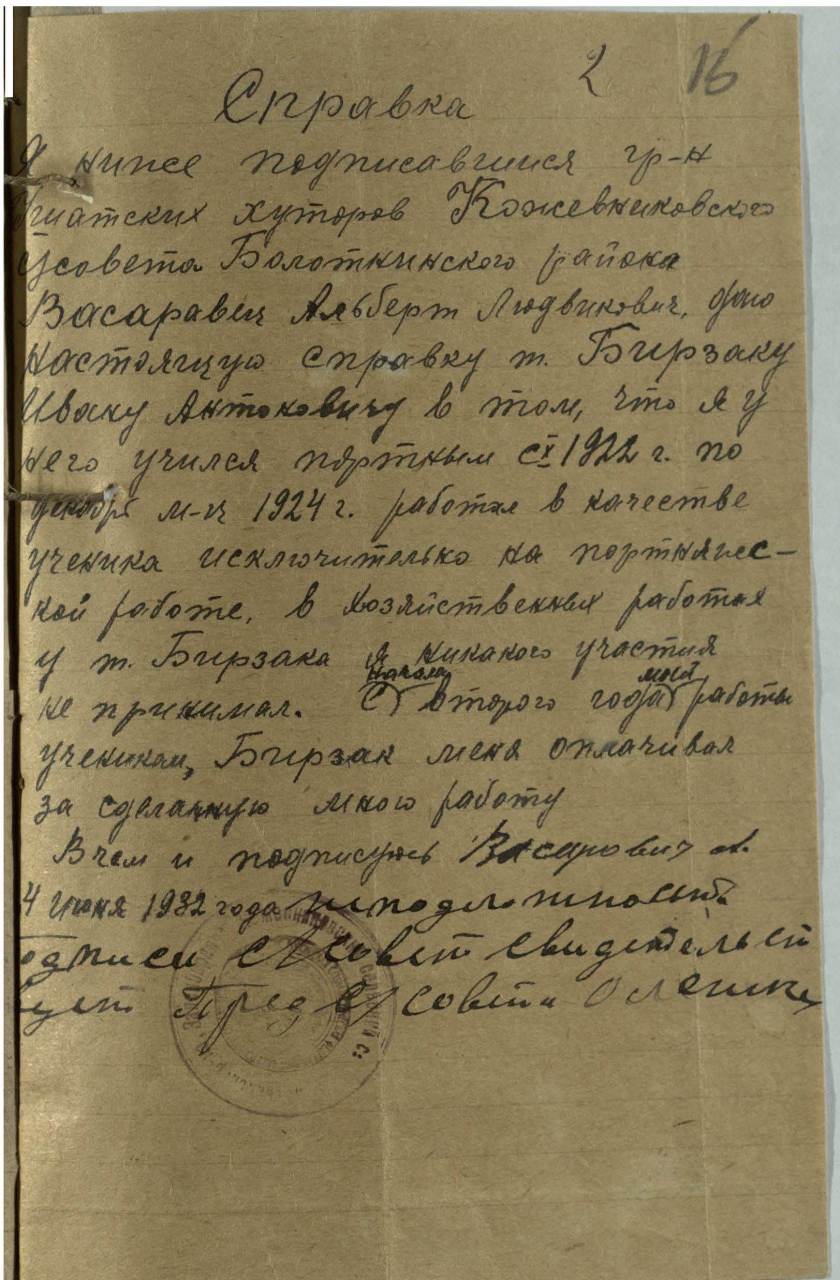 2 16
Справка
Я ниже подписавшийся гр-н
хуторов Кожевниковского
с/совета Болотнинского района
Васаравец Альберт Людвикович, даю
настоящую справку т. Бирзаку
Ивану Антоновичу в том, что я у
него учился портным с X 1922 г. по
декабрь м-ц 1924 г. работал в качестве
ученика исключительно на портняжес-
кой работе, в хозяйственных работах
у т. Бирзака я никакого участия
не принимал. С начала второго года моей работы
учеником, Бирзак меня оплачивал
за сделанную мною работу
В чем и подписуюсь Васарович А.
4 июня 1932 года неподложность
одписи с/совет свидетельст
ует Пред с/совета